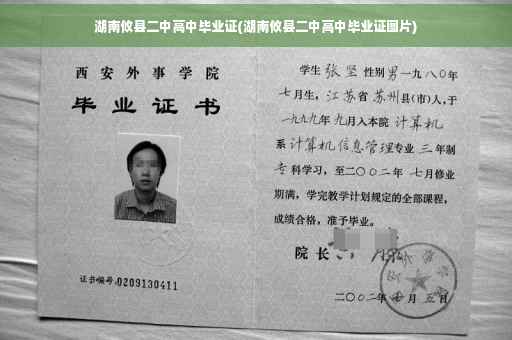 湖南攸县二中高中毕业证(湖南攸县二中高中毕业证图片)
西安外事学院
毕业证书
证书编号:0209130411
学生 张坚 性别 男 一九八〇年
七月生，江苏省 苏州县(市)人，于
一九九九年 九月入本院 计算机
系 计算机信息管理专业 三 年制
专科学习，至二〇〇二年 七月修业
期满，学完教学计划规定的全部课程，
成绩合格，准予毕业。
院长
二〇〇二年 月 五日